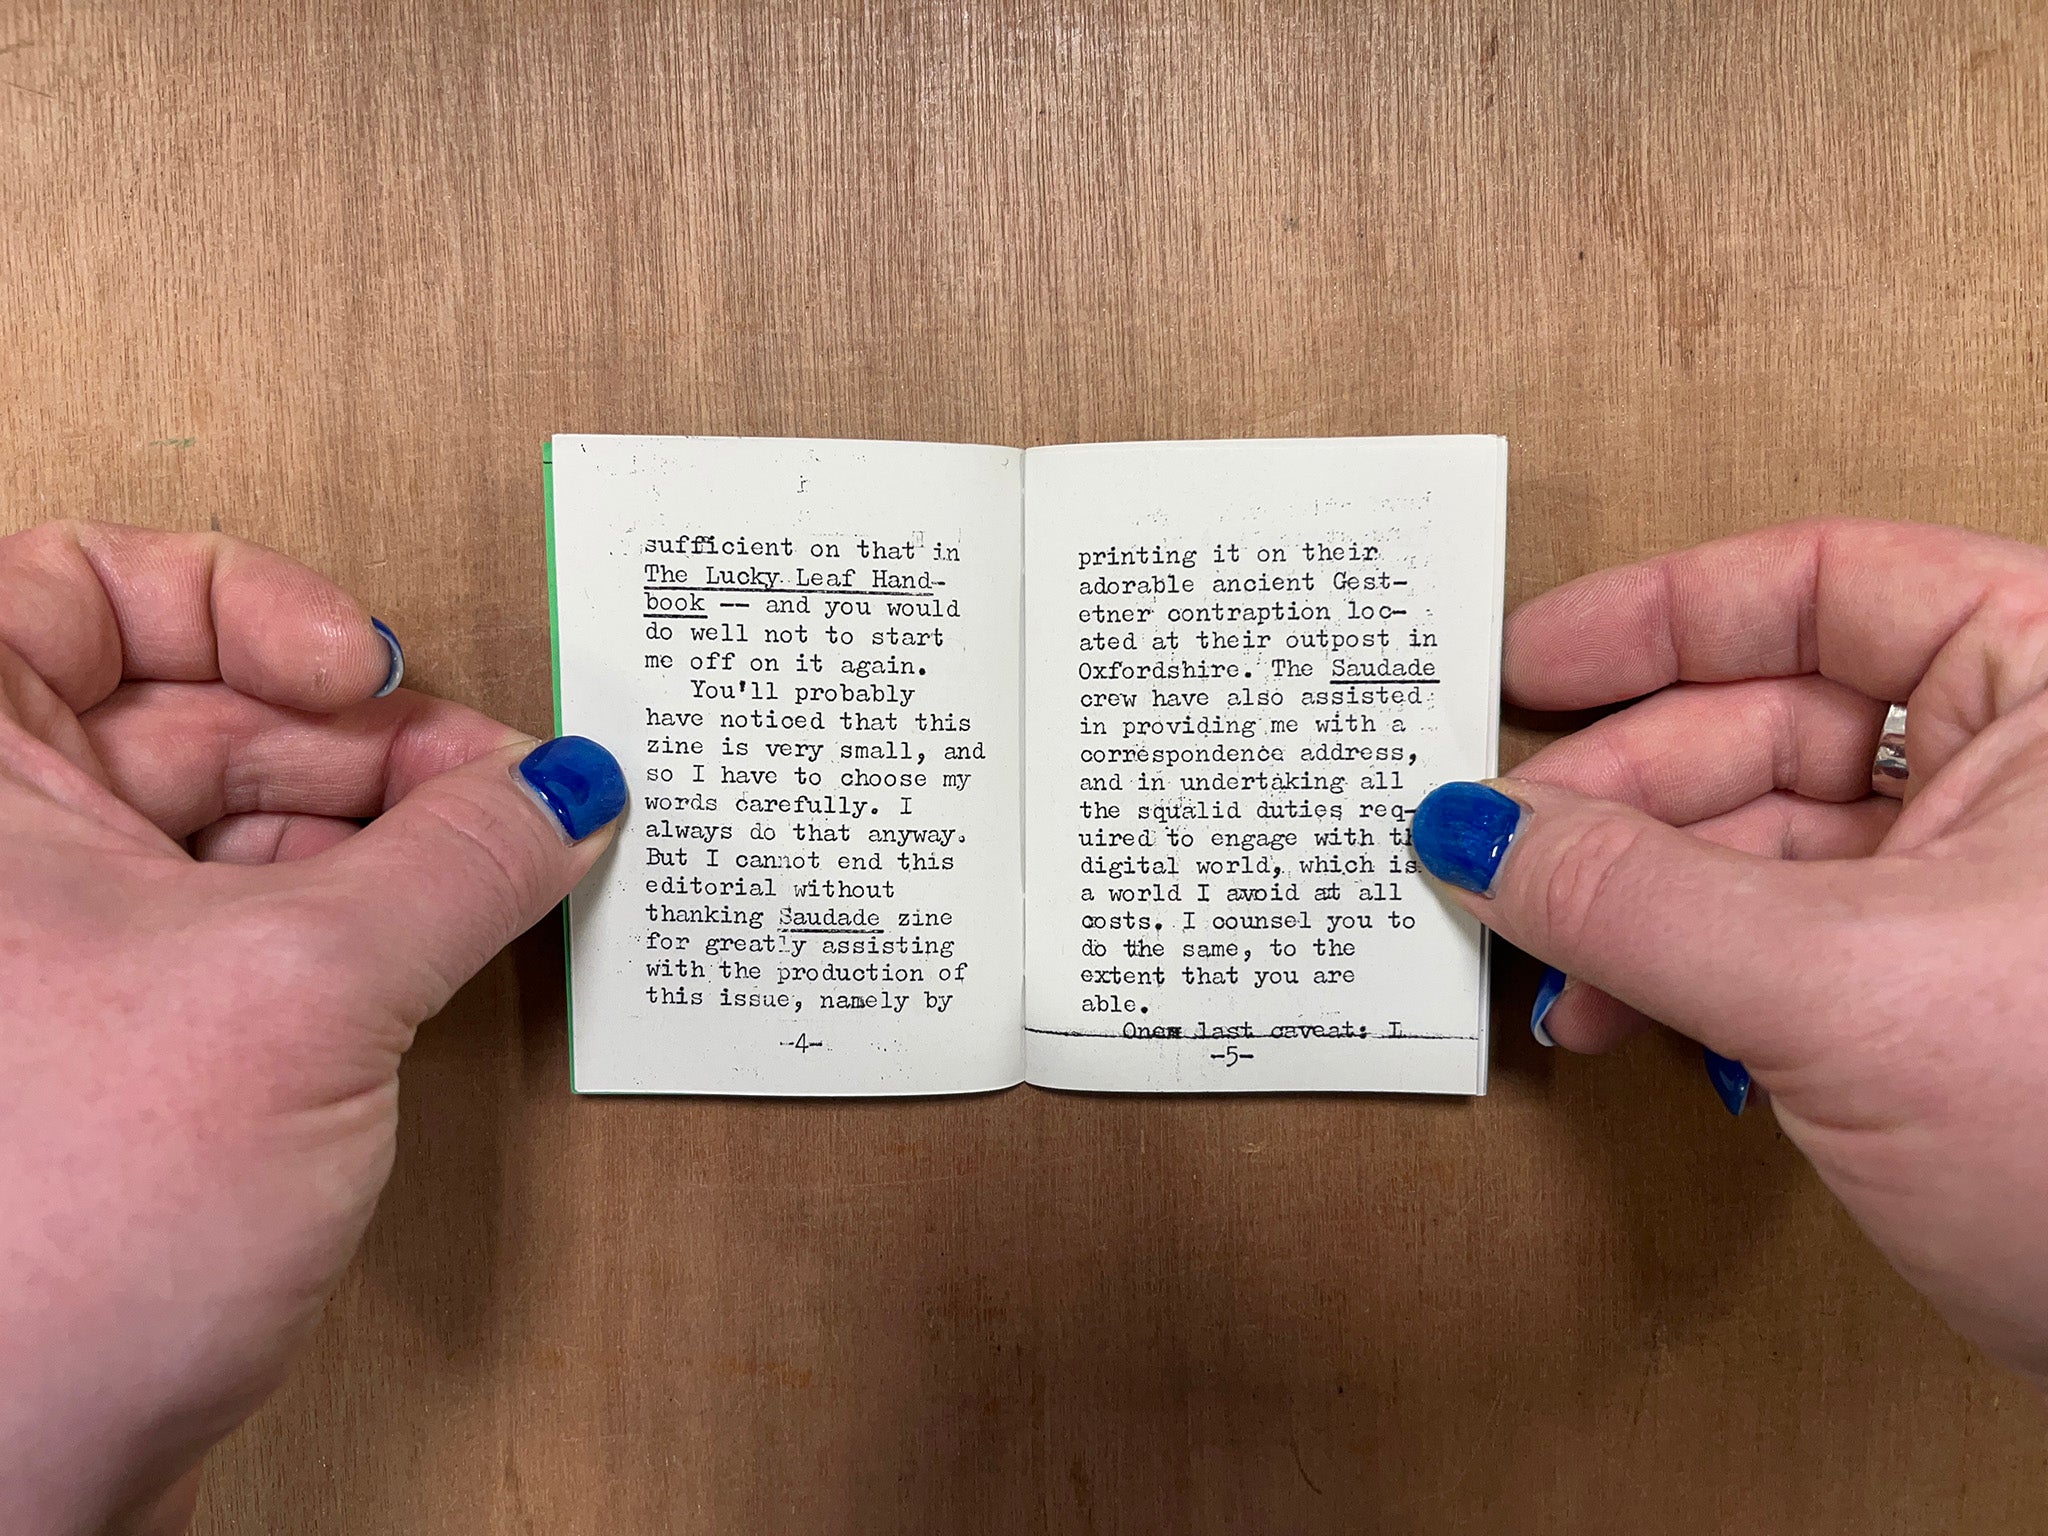 sufficient on that in
The Lucky Leaf Hand-
book -- and you would
do well not to start
me off on it again.
You'll probably
have noticed that this
zine is very small, and
so I have to choose my
words carefully. I
always do that anyway.
But I cannot end this
editorial without
thanking Saudade zine
for greatly assisting
with the production of
this issue, namely by
-4-
printing it on their
adorable ancient Gest-
etner contraption loc-
ated at their outpost in
Oxfordshire. The Saudade
crew have also assisted
in providing me with a
correspondence address,
and in undertaking all
the squalid duties req-
uired to engage with th
digital world, which is
a world I avoid at all
costs. I counsel you to
do the same, to the
extent that you are
able.
last caveat: I
-5-